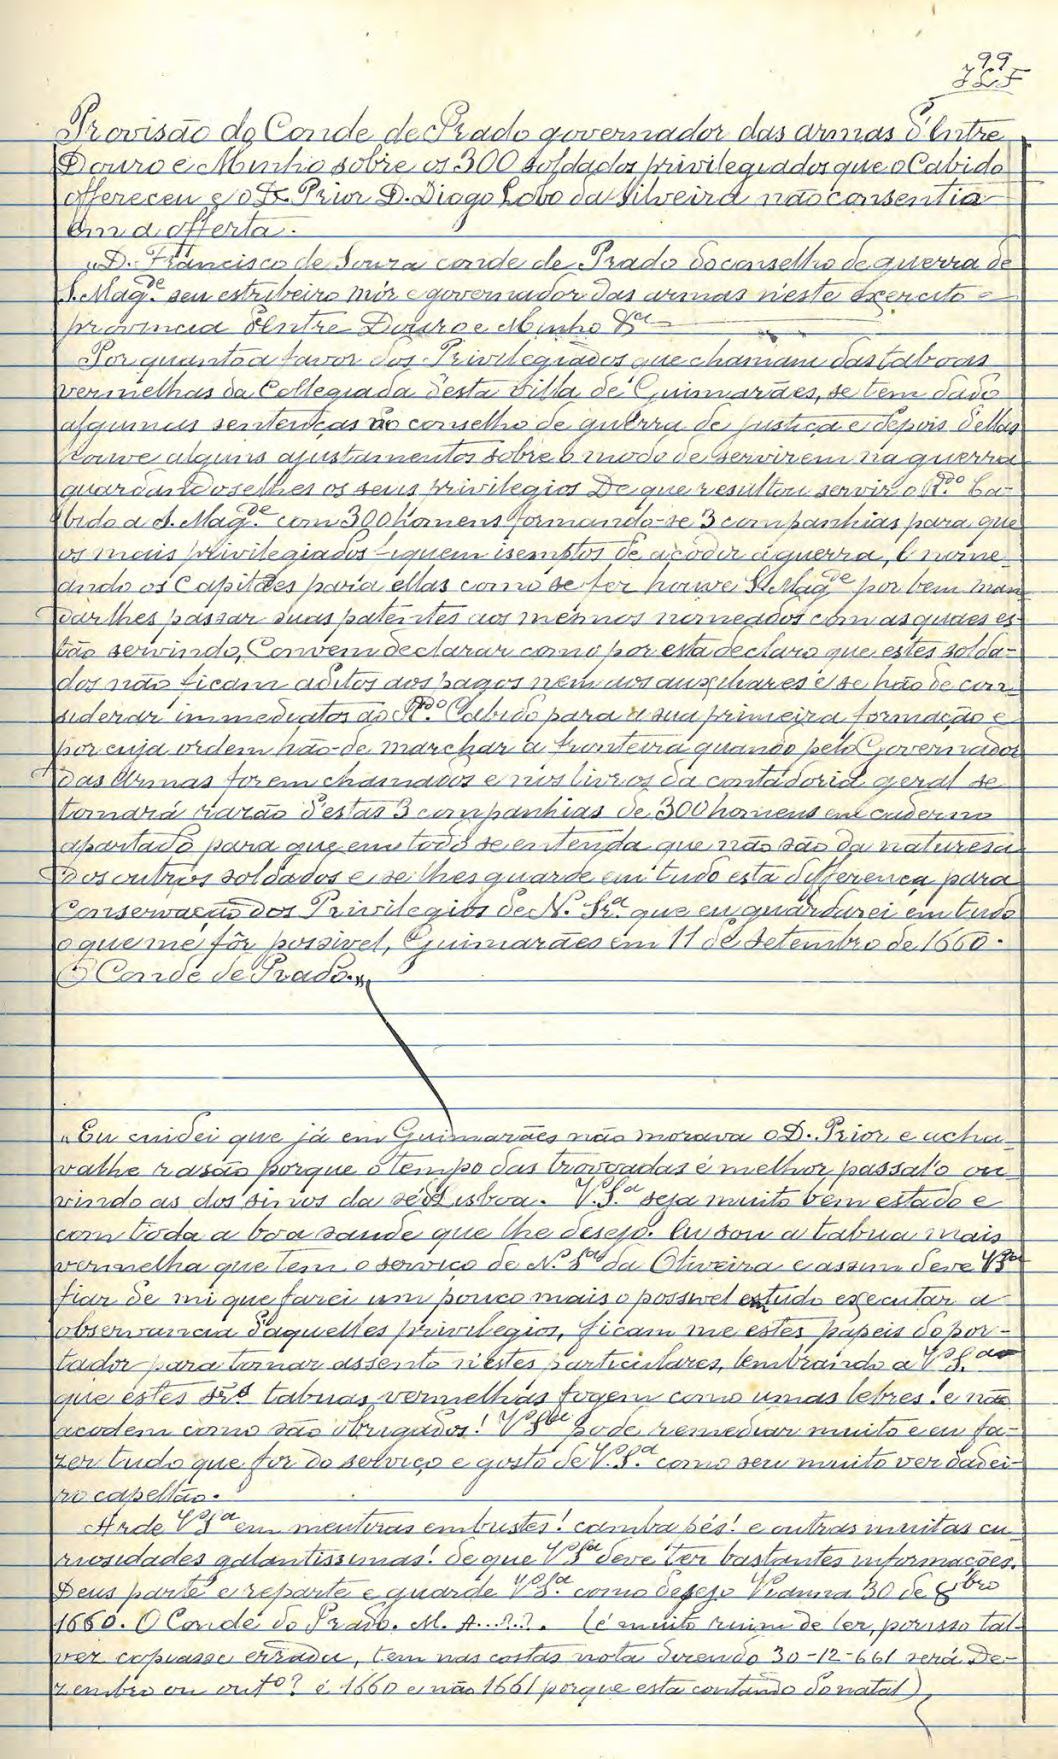 99
Provisão do Conde de Prado governador das armas d'Entre
Douro e Minho sobre os 300 soldados privilegiados que o Cabido
offereceu e o D. Prior D. Diogo Lobo da Silveira não consentia
em a offerta.
"D. Francisco de Souza conde de Prado do conselho de guerra de
S. Mag.de seu estribeiro mór e governador das armas n'este exercito e
provincia d'Entre Douro e Minho &a
Por quanto a favor dos Privilegiados que chamam das taboas
vermelhas da Collegiada d'esta villa de Guimarães, se tem dado
algumas sentenças no conselho de guerra, de justiça e depois d'ellas
houve alguns ajustamentos sobre o modo de servirem na guerra
guardandoselhes os seus privilegios De que resultou servir o R.do Ca-
bido a S. Mag.de com 300 homens formando-se 3 companhias para que
os mais privilegiados fiquem isemptos de acodir á guerra, E nome-
ando os Capitães para ellas como se fez houve S. Mag.de por bem man-
dar lhes passar suas patentes aos mesmos nomeados com as quaes es-
tão servindo, Convem declarar como por esta declaro que estes solda-
dos não ficam aditos aos pagos nem aos auxiliares e se hão de con-
siderar immediatos ao R.do Cabido para a sua primeira formação e
por cuja ordem hão-de marchar á fronteira quando pelo Governador
das Armas forem chamados e nos livros da contadoria geral se
tomará razão d'estas 3 companhias de 300 homens em caderno
apartado para que em todo se entenda que não são da naturesa
dos outros soldados e se lhes guarde em tudo esta differença para
Conservação dos Privilegios de N. Sr.a que eu guardarei em tudo
o que me fôr possivel, Guimarães em 11 de Setembro de 1660.
O Conde de Prado."
"Eu cuidei que já em Guimarães não morava o D. Prior e acha-
valhe rasão porque o tempo das trovoadas é melhor passal'o ou-
vindo as dos sinos da sé de Lisboa. V. S.a seja muito bem estado e
com toda a boa saude que lhe desejo. Eu sou a tabua mais
vermelha que tem o serviço de N. S.ra da Oliveira e assim deve V. S.a
fiar de mi que farei um pouco mais o possivel em tudo executar a
observancia d'aquelles privilegios, ficam me estes papeis do por-
tador para tomar assento n'estes particulares, lembrando a V. S.a
que estes Srs. tabuas vermelhas fogem como umas lebres! e não
acodem como são obrigados! V. S.a pode remediar muito e eu fa-
zer tudo que for do serviço e gosto de V. S.a como seu muito verdadei-
ro capellão.
Arde V. S.a em mentiras embustes! camba pés! e outras muitas cu-
riosidades galantissimas! de que V. S.a deve ter bastantes informações.
Deus parte e reparte e guarde V. S.a como desejo Vianna 30 de bro
1660. O Conde do Prado. M. A....??. (é muito ruim de ler, porisso tal-
vez copiasse errada, tem nas costas nota dizendo 30-12-661 será De-
zembro ou outº? é 1660 e não 1661 porque esta contando do natal)